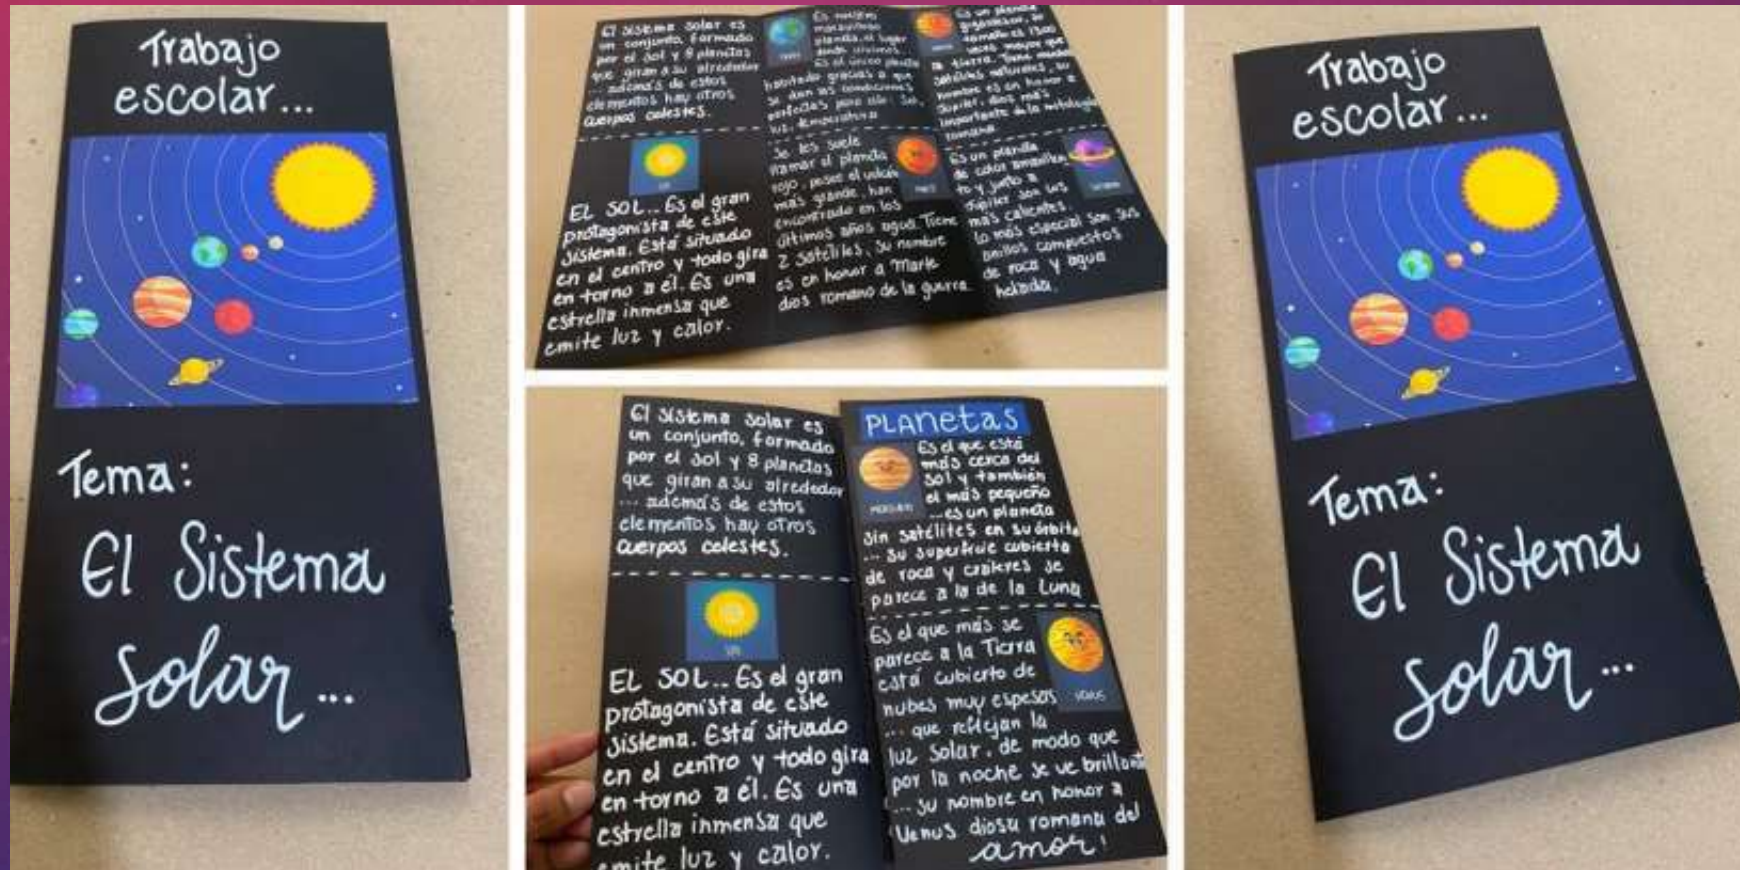 Trabajo
escolar...
Tema:
El Sistema
solar...
El sistema solar es
un conjunto, formado
por el sol y 8 planetas
que giran a su alrededor
... además de estos
elementos hay otros
cuerpos celestes.
SOL
EL SOL... Es el gran
protagonista de este
sistema. Está situado
en el centro y todo gira
en torno a él. Es una
estrella inmensa que
emite luz y calor.
Es nuestro
maravilloso
planeta, el lugar
donde vivimos
Es el único planeta
habitado gracias a que
se dan las condiciones
perfectas para ello: Sol,
luz, temperatura
Se les suele
llamar el planeta
rojo, posee el volcán
más grande, han
encontrado en los
últimos años agua. Tiene
2 satélites, su nombre
es en honor a Marte
dios romano de la guerra.
Es un planeta
gigantesco, su
tamaño es 1300
veces mayor que
la tierra. Tiene muchos
satélites naturales, su
nombre es en honor a
Júpiter, dios más
importante de la mitología
romana
Es un planeta
de color amarillen
to y junto a
Júpiter son los
más calientes
lo más especial son sus
anillos compuestos
de roca y agua
helada.
El sistema solar es
un conjunto, formado
por el sol y 8 planetas
que giran a su alrededor
... además de estos
elementos hay otros
cuerpos celestes.
SOL
EL SOL... Es el gran
protagonista de este
sistema. Está situado
en el centro y todo gira
en torno a él. Es una
estrella inmensa que
emite luz y calor.
PLANETAS
Es el que está
más cerca del
Sol y también
el más pequeño
... es un planeta
MERCURIO
sin satélites en su órbita
... su superficie cubierta
de roca y cráteres se
parece a la de la Luna
Es el que más se
parece a la Tierra
está cubierto de
nubes muy espesas
VENUS
... que reflejan la
luz solar, de modo que
por la noche se ve brillante
... su nombre en honor a
Venus diosa romana del
amor!
Trabajo
escolar...
Tema:
El Sistema
solar...